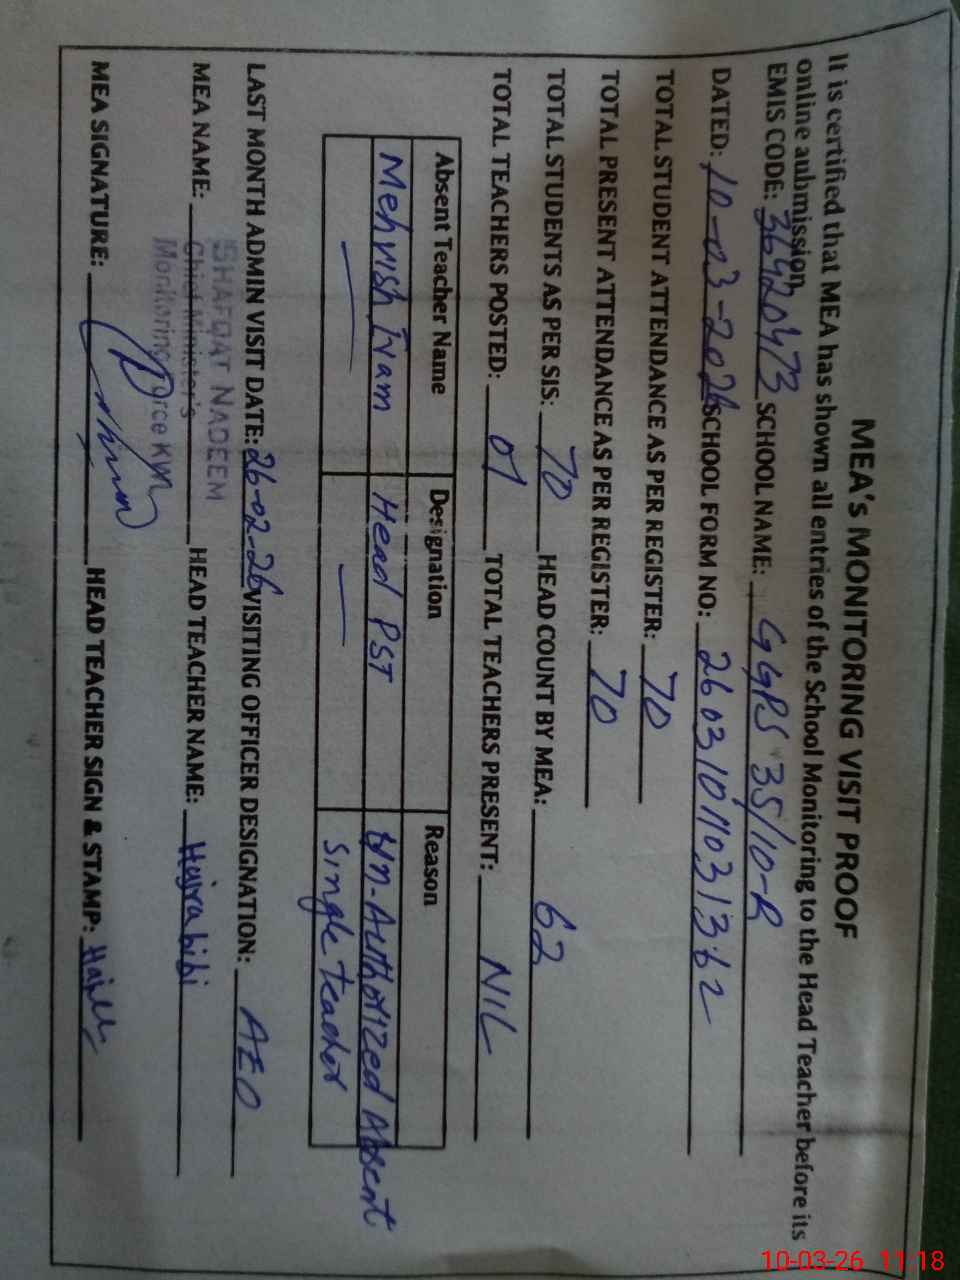 MEA'S MONITORING VISIT PROOF
It is certified that MEA has shown all entries of the School Monitoring to the Head Teacher before its
online aubmission
EMIS CODE: 36420473 SCHOOL NAME: GGPS 35/10-R
DATED: 10-03-2026 SCHOOL FORM NO: 26031011031362
TOTAL STUDENT ATTENDANCE AS PER REGISTER: 70
TOTAL PRESENT ATTENDANCE AS PER REGISTER: 70
TOTAL STUDENTS AS PER SIS: 70 HEAD COUNT BY MEA: 62
TOTAL TEACHERS POSTED: 01 TOTAL TEACHERS PRESENT: NIL
Absent Teacher Name Designation Reason
Mehvish Head PST Un-Authorized Absent
— — Single teacher
LAST MONTH ADMIN VISIT DATE: 26-02-26 VISITING OFFICER DESIGNATION: AEO
SHAFQAT NADEEM
MEA NAME: Chief Minister's HEAD TEACHER NAME: Hajra bibi
Monitoring Force KWL
MEA SIGNATURE: HEAD TEACHER SIGN & STAMP:
10-03-26 11:18